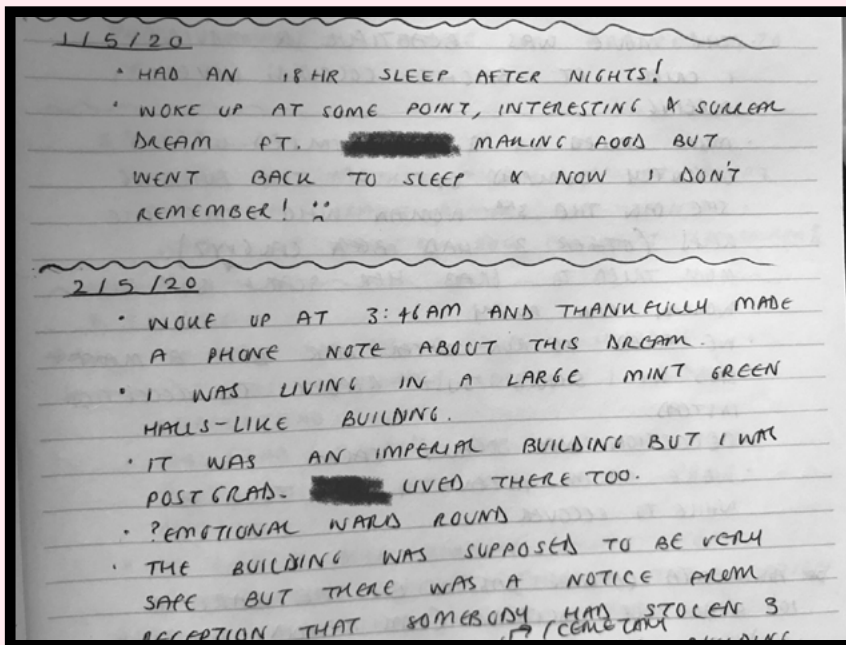 1/5/20
• HAD AN 18 HR SLEEP AFTER NIGHTS!
• WOKE UP AT SOME POINT, INTERESTING & SURREAL
DREAM FT. MAKING FOOD BUT
WENT BACK TO SLEEP & NOW I DON'T
REMEMBER! :(
2/5/20
• WOKE UP AT 3:46AM AND THANKFULLY MADE
A PHONE NOTE ABOUT THIS DREAM.
• I WAS LIVING IN A LARGE MINT GREEN
HALLS-LIKE BUILDING.
• IT WAS AN IMPERIAL BUILDING BUT I WAS
POSTGRAD. LIVED THERE TOO.
• ?EMOTIONAL WARD ROUND
• THE BUILDING WAS SUPPOSED TO BE VERY
SAFE BUT THERE WAS A NOTICE FROM
RECEPTION THAT SOMEBODY HAD STOLEN 3